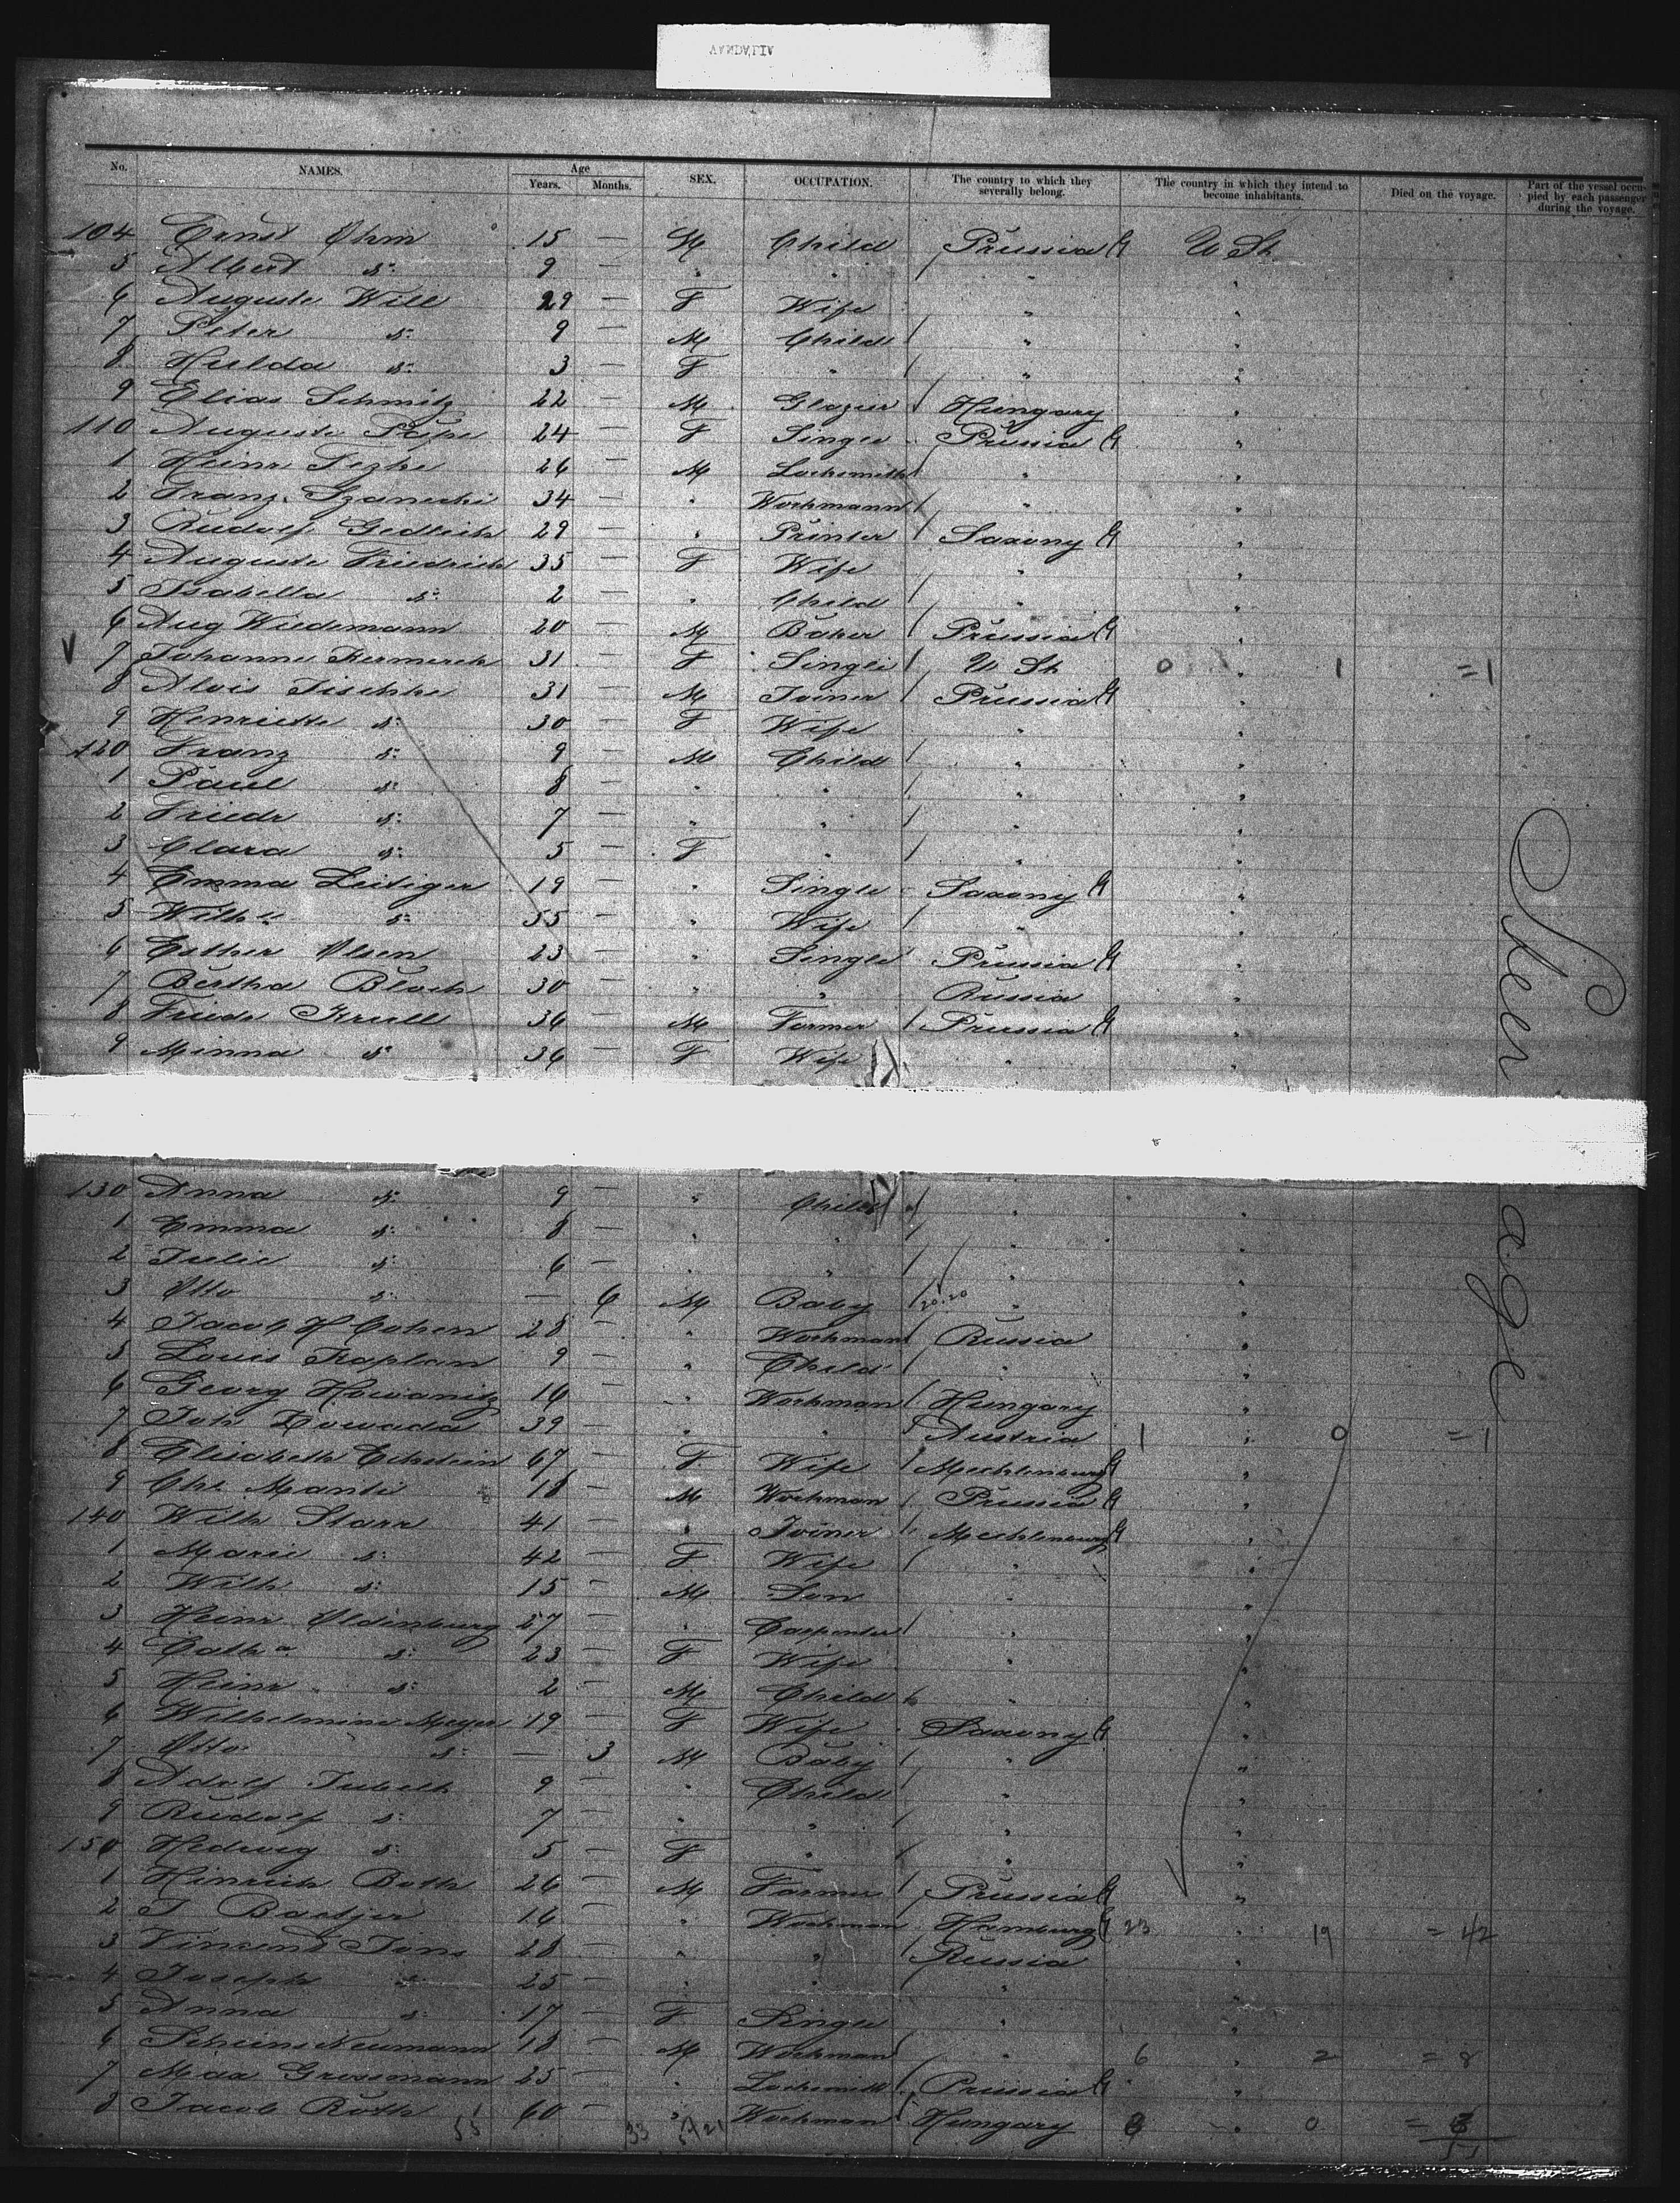 No. NAMES. Age Years. Months. SEX. OCCUPATION. The country to which they severally belong. The country in which they intend to become inhabitants. Died on the voyage. Part of the vessel occupied by each passenger during the voyage.
104 Ernst Ohm 15 — M Child Prussia G U St
5 Albert d: 9 — " " " "
6 Auguste Will 29 — F Wife " "
7 Peter d: 9 — M Child " "
8 Hulda d: 3 — F " " "
9 Elias Schmitz 22 — M Glazier Hungary "
110 Auguste Pape 24 — F Single Prussia G "
1 Heinr 26 — M Locksmith " "
2 Franz 34 — " Workmann " "
3 Rudolf Gedlich 29 — " Printer Saxony G "
4 Auguste Friedrich 35 — F Wife " "
5 Isabella d: 2 — " Child " "
6 Aug Wiedemann 20 — M Baker Prussia G "
7 Johanne 31 — F Single U St 0 " 1 =1
8 Alois Tischke 31 — M Joiner Prussia G "
9 Henriette d: 30 — F Wife " "
120 Franz d: 9 — M Child " "
1 Paul d: 8 — " " " "
2 Friedr d: 7 — " " " "
3 Clara d: 5 — F " " "
4 Emma Leidiger 19 — " Single Saxony G "
5 Wilhe d: 55 — " Wife " "
6 Esther Olsen 23 — " Single Prussia G "
7 Bertha Bloch 30 — " " Russia "
8 Friedr Krull 36 — M Farmer Prussia G "
9 Minna d: 36 — F Wife " "
130 Anna d: 9 — " Child " "
1 Emma d: 8 — " " " "
2 Julie d: 6 — " " " "
3 Otto d: — 6 M Baby 20.20 " "
4 Jacob H Cohen 28 — " Workman Russia "
5 Louis Kaplan 9 — " Child " "
6 Georg Howanitz 16 — " Workman Hungary "
7 Joh 39 — " " Austria 1 " 0 =1
8 Elisabeth Eckstein 67 — F Wife Mecklenburg G "
9 Chr Manti 18 — M Workman Prussia G "
140 Wilh Starr 41 — " Joiner Mecklenburg G "
1 Marie d: 42 — F Wife " "
2 Wilh d: 15 — M Son " "
3 Heinr Oldenburg 27 — " Carpenter " "
4 Catha d: 23 — F Wife " "
5 Heinr d: 2 — M Child " "
6 Wilhelmine Meyer 19 — F Wife Saxony G "
7 Otto d: — 3 M Baby " "
8 Adolf 9 — " Child " "
9 Rudolf d: 7 — " " " "
150 Hedwig d: 5 — F " " "
1 Hinrich Both 26 — M Farmer Prussia G "
2 J Baetjer 16 — " Workman Hamburg G 23 " 19 = 42
3 Vincent 28 — " " Russia "
4 Joseph d: 25 — " " " "
5 Anna d: 17 — F Single " "
6 Neumann 18 — M Workman " 6 " 2 = 8
7 Max Grossmann 25 — " Locksmith Prussia G "
8 Jacob Roth 60 — " Workman Hungary " 0
55 33 21
Steerage